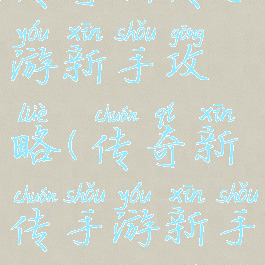 yóu xīn shǒu gōng
游新手攻
lüè chuán qí xīn
略(传奇新
chuán shǒu yóu xīn shǒu
传手游新手